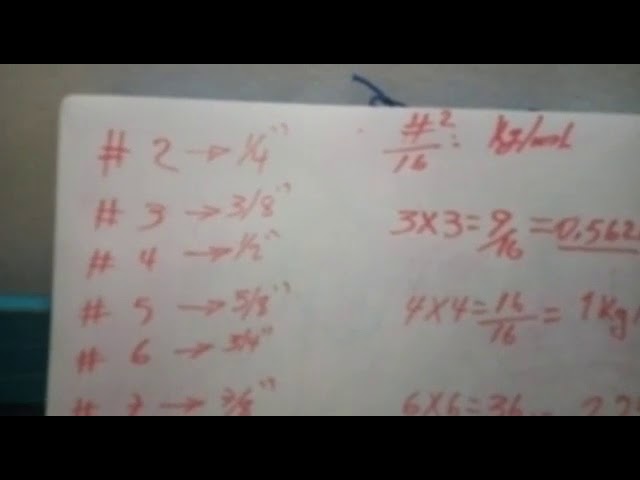 # 2 → 1/4"
# 3 → 3/8"
# 4 → 1/2"
# 5 → 5/8"
# 6 → 3/4"
# 7 → 7/8"
#²/16 :
3x3=9/16=0.562
4x4=16/16= 1Kg/
6x6=36